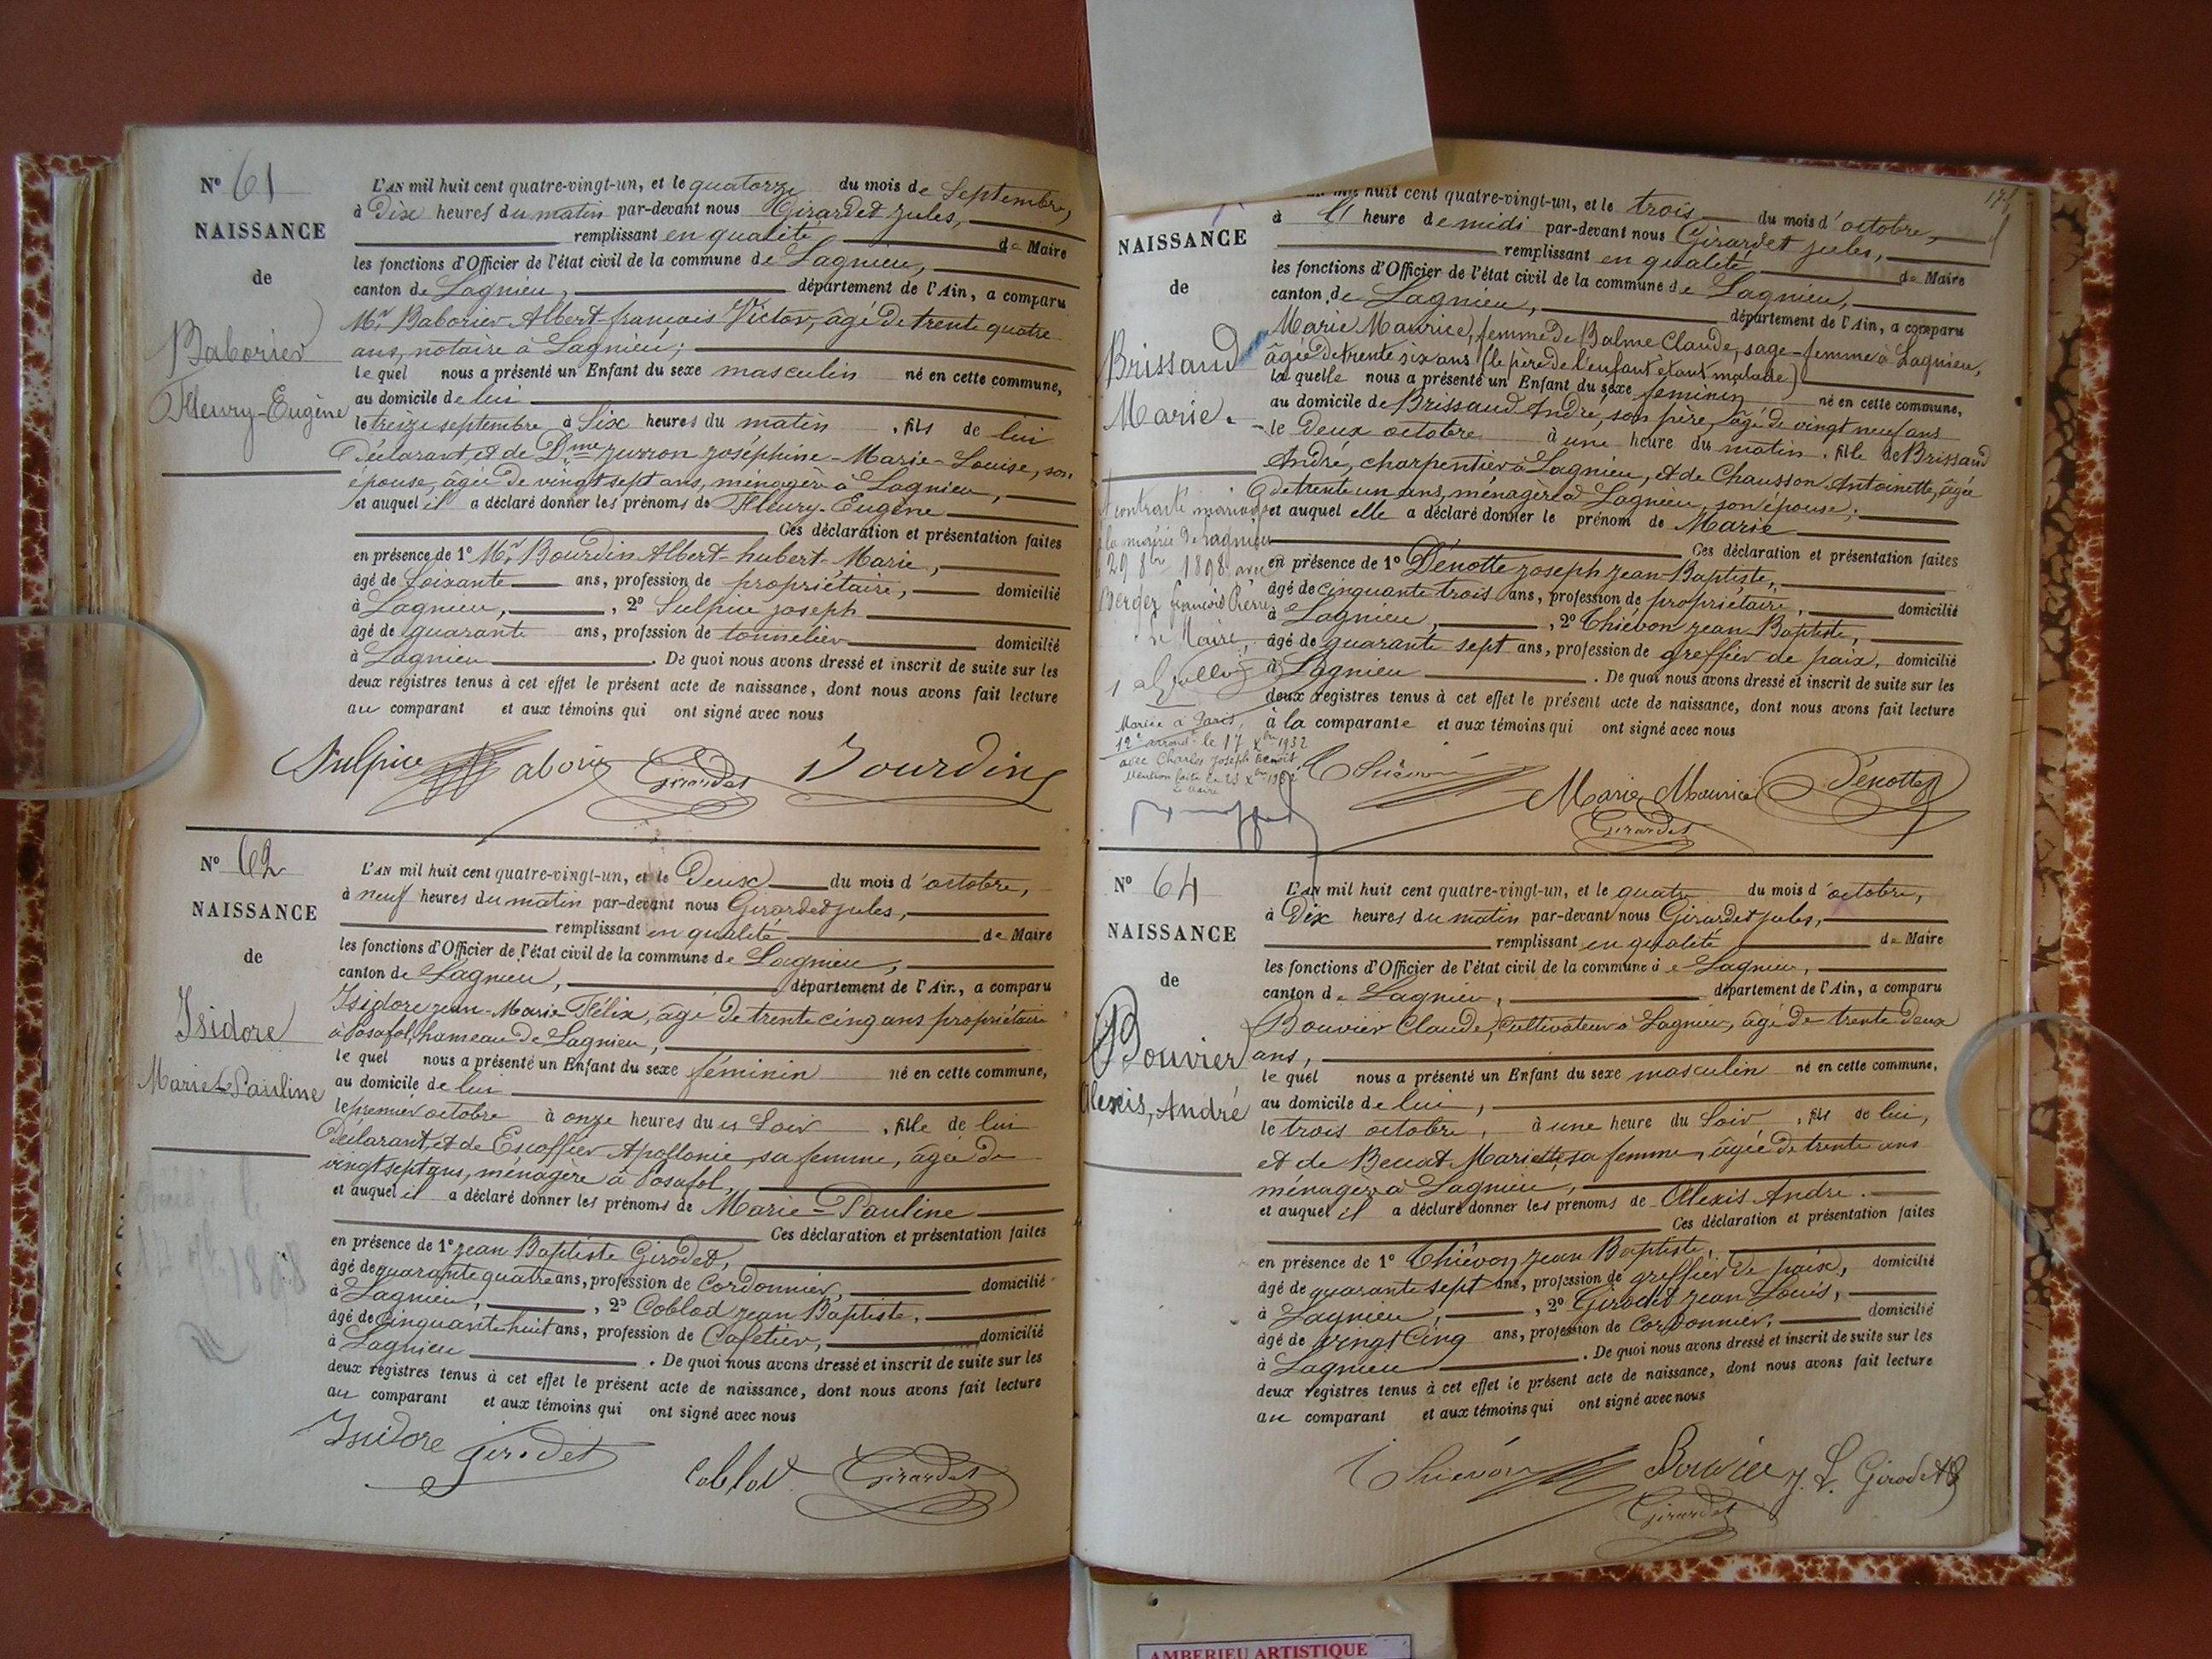 N° 61
NAISSANCE
de
Baborier
Fleury-Eugène
L'AN mil huit cent quatre-vingt-un, et le quatorze du mois de Septembre,
à Dix heures du matin par-devant nous Girardet Jules,
remplissant en qualité de Maire
les fonctions d'Officier de l'état civil de la commune de Lagnieu,
canton de Lagnieu, département de l'Ain, a comparu
Mr Baborier Albert-françois Victor, âgé de trente quatre
ans, notaire à Lagnieu;
le quel nous a présenté un Enfant du sexe masculin né en cette commune,
au domicile de lui
le treize septembre à Six heures du matin, fils de lui
Déclarant, et de Dme Joséphine-Marie-Louise, son
épouse, âgée de vingt sept ans, ménagère à Lagnieu,
et auquel il a déclaré donner les prénoms de Fleury-Eugène
Ces déclaration et présentation faites
en présence de 1° Mr Bourdin Albert-hubert-Marie,
âgé de Soixante ans, profession de propriétaire, domicilié
à Lagnieu, , 2° Sulpice Joseph
âgé de quarante ans, profession de tonnelier domicilié
à Lagnieu . De quoi nous avons dressé et inscrit de suite sur les
deux registres tenus à cet effet le présent acte de naissance, dont nous avons fait lecture
au comparant et aux témoins qui ont signé avec nous
Sulpice Baborier Girardet Bourdin
N° 62
NAISSANCE
de
Isidore
Marie-Pauline
L'AN mil huit cent quatre-vingt-un, et le Deux du mois d'octobre,
à neuf heures du matin par-devant nous Girardet Jules,
remplissant en qualité de Maire
les fonctions d'Officier de l'état civil de la commune de Lagnieu,
canton de Lagnieu, département de l'Ain, a comparu
Isidore Jean-Marie-Félix, âgé de trente cinq ans propriétaire
à Posafol, hameau de Lagnieu,
le quel nous a présenté un Enfant du sexe féminin né en cette commune,
au domicile de lui
le premier octobre à onze heures du Soir, fille de lui
Déclarant, et de Escoffier Apollonie, sa femme, âgée de
vingt sept ans, ménagère à Posafol,
et auquel il a déclaré donner les prénoms de Marie-Pauline
Ces déclaration et présentation faites
en présence de 1° Jean Baptiste Girodet,
âgé de quarante quatre ans, profession de Cordonnier, domicilié
à Lagnieu, , 2° Coblod Jean Baptiste,
âgé de Cinquante huit ans, profession de Cafetier, domicilié
à Lagnieu . De quoi nous avons dressé et inscrit de suite sur les
deux registres tenus à cet effet le présent acte de naissance, dont nous avons fait lecture
au comparant et aux témoins qui ont signé avec nous
Isidore Girodet Coblod Girardet
NAISSANCE
de
Brissaud
Marie.
contracté mariage
la mairie de Lagnieu
29 8bre 1898 avec
Berger françois Pierre
Le Maire,
Mariée à Paris,
12e arrondt le 17 Xbre 1932
avec Charles Joseph Benoit
Mention faite le 23 Xbre 1932
huit cent quatre-vingt-un, et le trois du mois d'octobre,
à heure de midi par-devant nous Girardet Jules,
remplissant en qualité de Maire
les fonctions d'Officier de l'état civil de la commune de Lagnieu,
canton de Lagnieu, département de l'Ain, a comparu
Marie Maurice, femme de Balme Claude, sage-femme à Lagnieu,
âgée de trente six ans (le père de l'enfant étant malade)
la quelle nous a présenté un Enfant du sexe féminin né en cette commune,
au domicile de Brissaud André, son père, âgé de vingt neuf ans
le Deux octobre à une heure du matin, fille de Brissaud
André, charpentier à Lagnieu, et de Chausson Antoinette, âgée
de trente un ans, ménagère à Lagnieu, son épouse;
et auquel elle a déclaré donner le prénom de Marie
Ces déclaration et présentation faites
en présence de 1° Dénotte Joseph Jean-Baptiste,
âgé de cinquante trois ans, profession de propriétaire, domicilié
à Lagnieu, , 2° Thiévon Jean-Baptiste,
âgé de quarante sept ans, profession de greffier de paix, domicilié
à Lagnieu . De quoi nous avons dressé et inscrit de suite sur les
deux registres tenus à cet effet le présent acte de naissance, dont nous avons fait lecture
à la comparante et aux témoins qui ont signé avec nous
Thiévon Marie Maurice Dénotte
Girardet
N° 64
NAISSANCE
de
Bouvier
Alexis, André
L'AN mil huit cent quatre-vingt-un, et le quatre du mois d'octobre,
à Dix heures du matin par-devant nous Girardet Jules,
remplissant en qualité de Maire
les fonctions d'Officier de l'état civil de la commune de Lagnieu,
canton de Lagnieu, département de l'Ain, a comparu
Bouvier Claude, Cultivateur à Lagnieu, âgé de trente deux
ans,
le quel nous a présenté un Enfant du sexe masculin né en cette commune,
au domicile de lui,
le trois octobre, à une heure du Soir, fils de lui,
et de Benat Mariette, sa femme, âgée de trente ans
ménagère à Lagnieu,
et auquel il a déclaré donner les prénoms de Alexis André.
Ces déclaration et présentation faites
en présence de 1° Thiévon Jean Baptiste,
âgé de quarante sept ans, profession de greffier de paix, domicilié
à Lagnieu, , 2° Girodet Jean Louis,
âgé de vingt Cinq ans, profession de Cordonnier, domicilié
à Lagnieu . De quoi nous avons dressé et inscrit de suite sur les
deux registres tenus à cet effet le présent acte de naissance, dont nous avons fait lecture
au comparant et aux témoins qui ont signé avec nous
Thiévon Bouvier J. L. Girodet
Girardet
AMBERIEU ARTISTIQUE